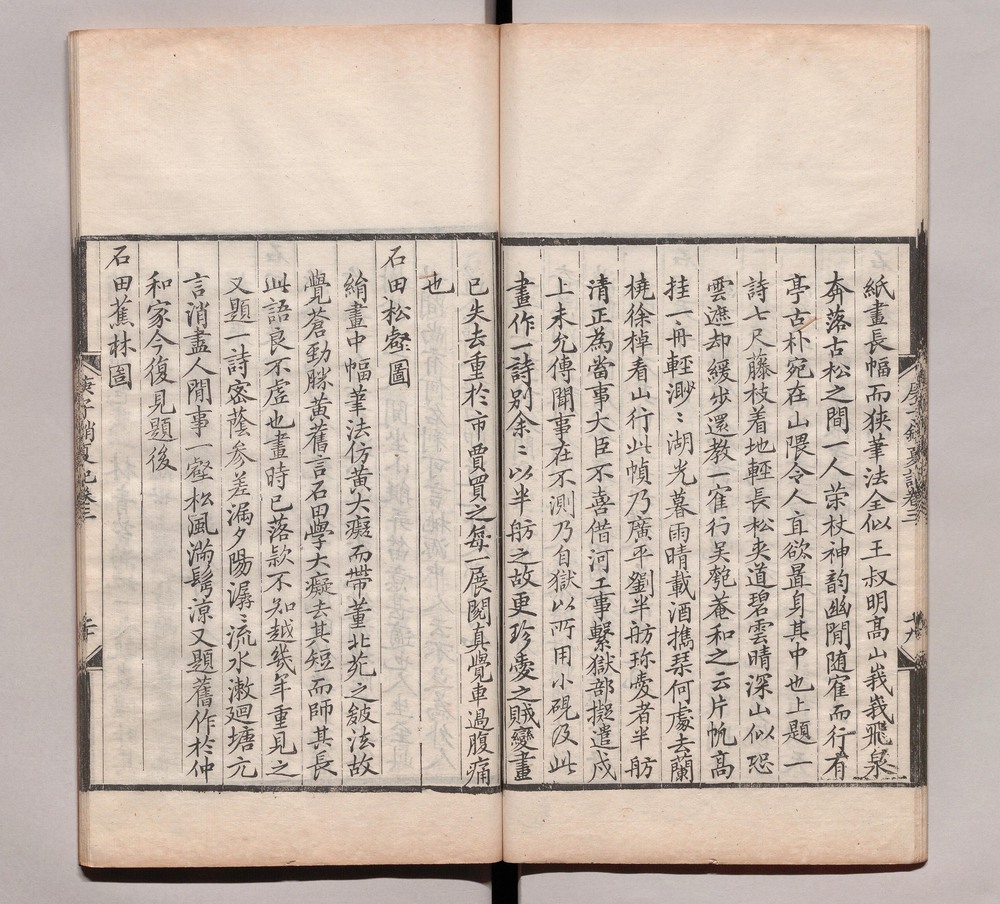 紙畫長幅而狹筆法全似王叔明高山峩峩飛泉
奔落古松之間一人荣杖神韵幽閒随寉而行有
亭古朴宛在山隈令人直欲置身其中也上題一
詩七尺藤枝着地輕長松夾道碧雲晴深山似恐
雲遮却緩步還教一寉行吴匏菴和之云片帆高
挂一舟輕渺〻湖光暮雨晴載酒携琹何處去蘭
橈徐棹看山行此幀乃廣平劉半舫珎愛者半舫
清正為當事大臣不喜借河工事繫獄部擬遣戍
上未允傳聞事在不測乃自獄以所用小硯及此
畫作一詩别余〻以半舫之故更珍愛之賊變畫
已失去重於市賈買之每一展閱真覺車過腹痛
也
石田松壑圖
絹畫中幅筆法仿黄大癡而帶董北苑之皴法故
覺蒼勁勝黄舊言石田學大癡去其短而師其長
此語良不虚也畫時已落款不知越幾年重見之
又題一詩密蔭参差漏夕陽潺〻流水漱廻塘元
言消盡人閒事一壑松風滿鬂涼又題舊作於仲
和家今復見題後
石田蕉林圖
庚子銷夏記卷三